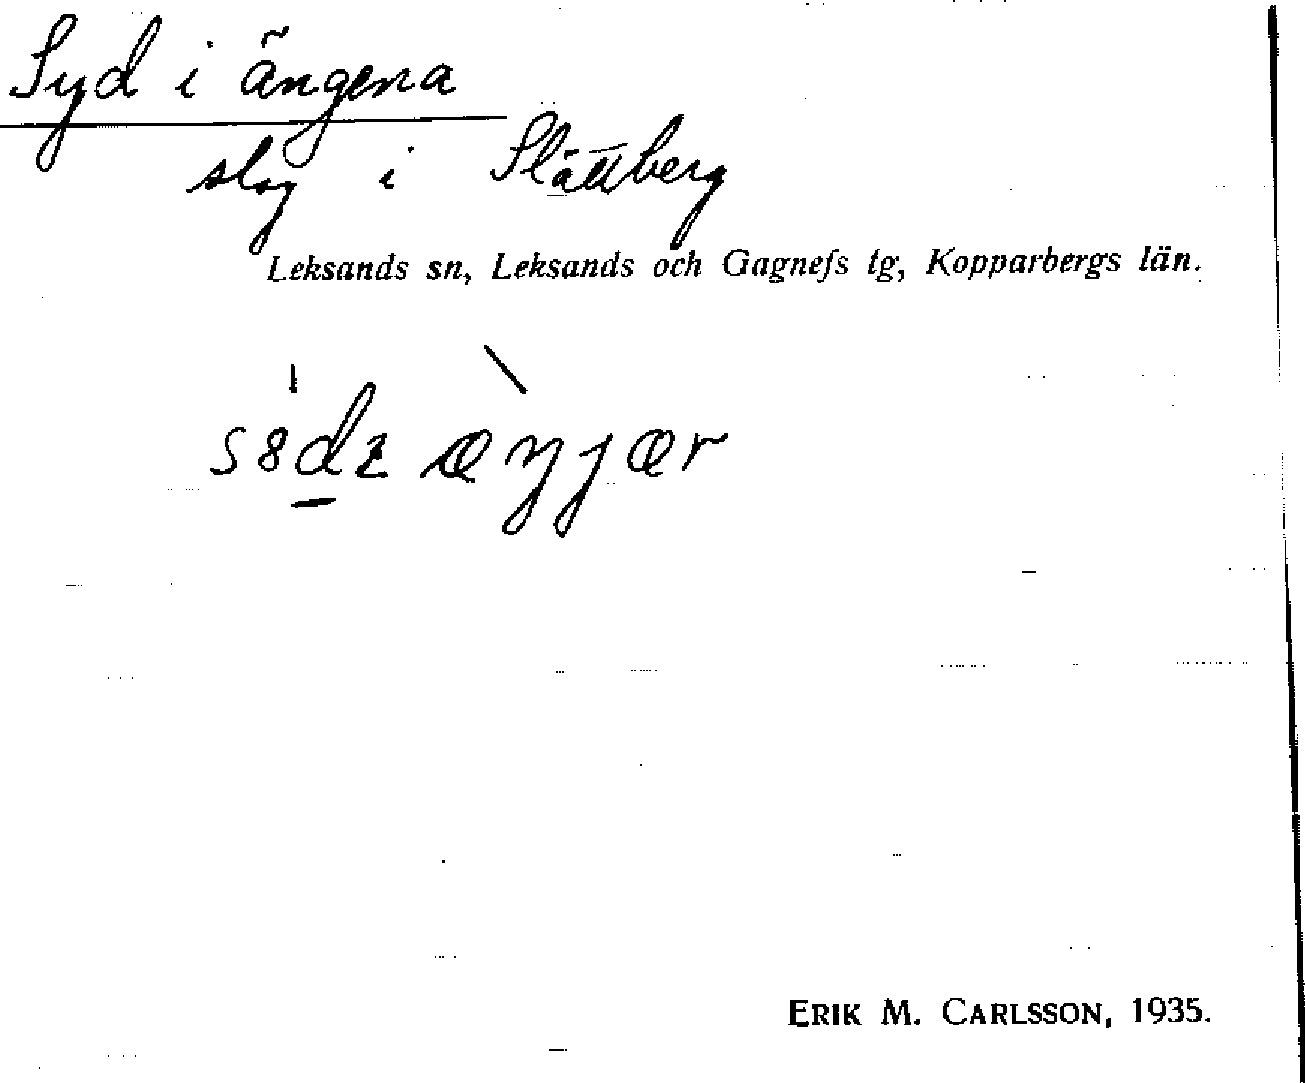 Syd i ängena
slog i Slättberg
Leksands sn, Leksands och Gagnefs tg, Kopparbergs län.
ERIK M. CARLSSON, 1935.